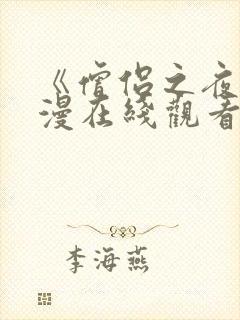 《僧侣之夜
漫在綫觀看
李海燕